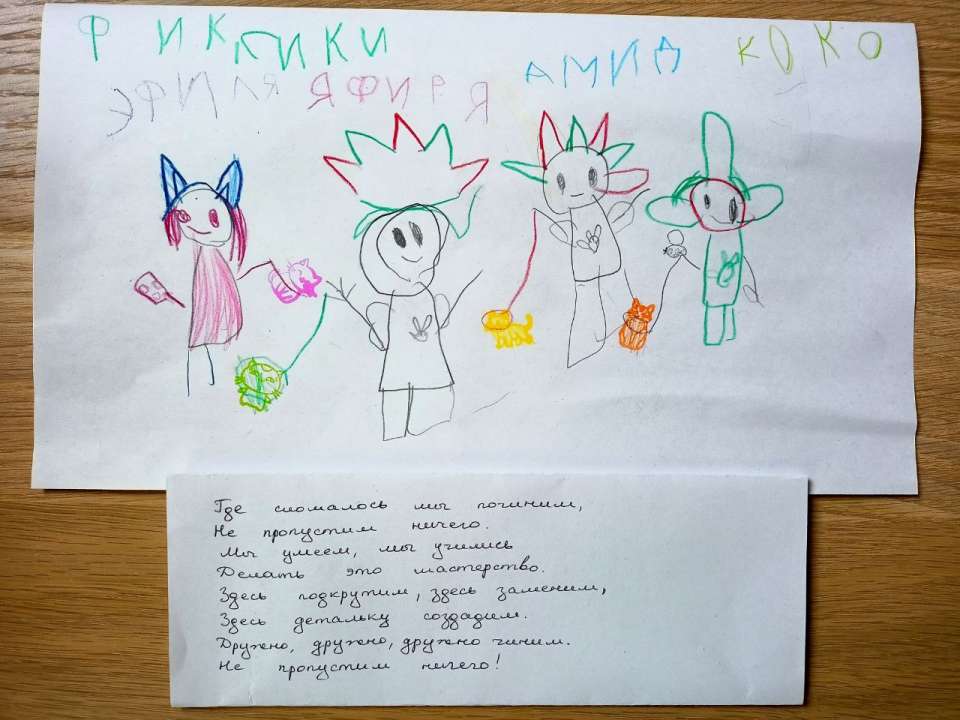 Ф ИККИКИ АМИД КОКО
ЯФИРЯ
Где сломалось мы починим,
Не пропустим ничего.
Мы умеем, мы учились
Делать это мастерство.
Здесь подкрутим, здесь заменим,
Здесь детальку создадим.
Дружно, дружно, дружно чиним.
Не пропустим ничего!